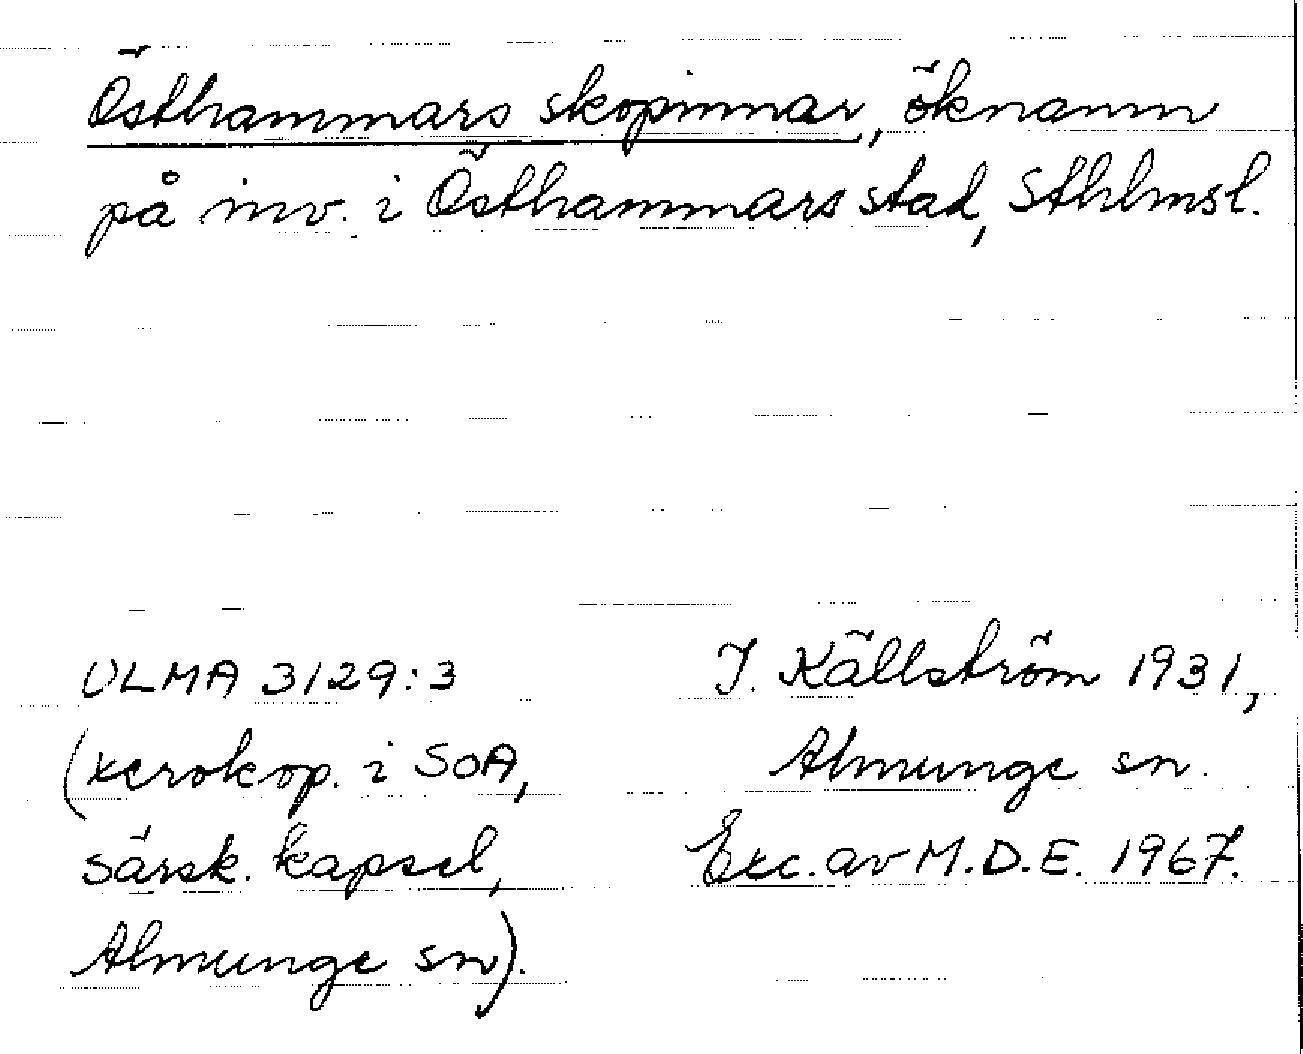 Östhammars skopinnar, öknamn
på inv. i Östhammars stad, Sthlmsl.
ULMA 3129:3
(xerokop. i SOA,
särsk. kapsel,
Almunge sn).
J. Källström 1931,
Almunge sn.
Exc. av M.D.E. 1967.